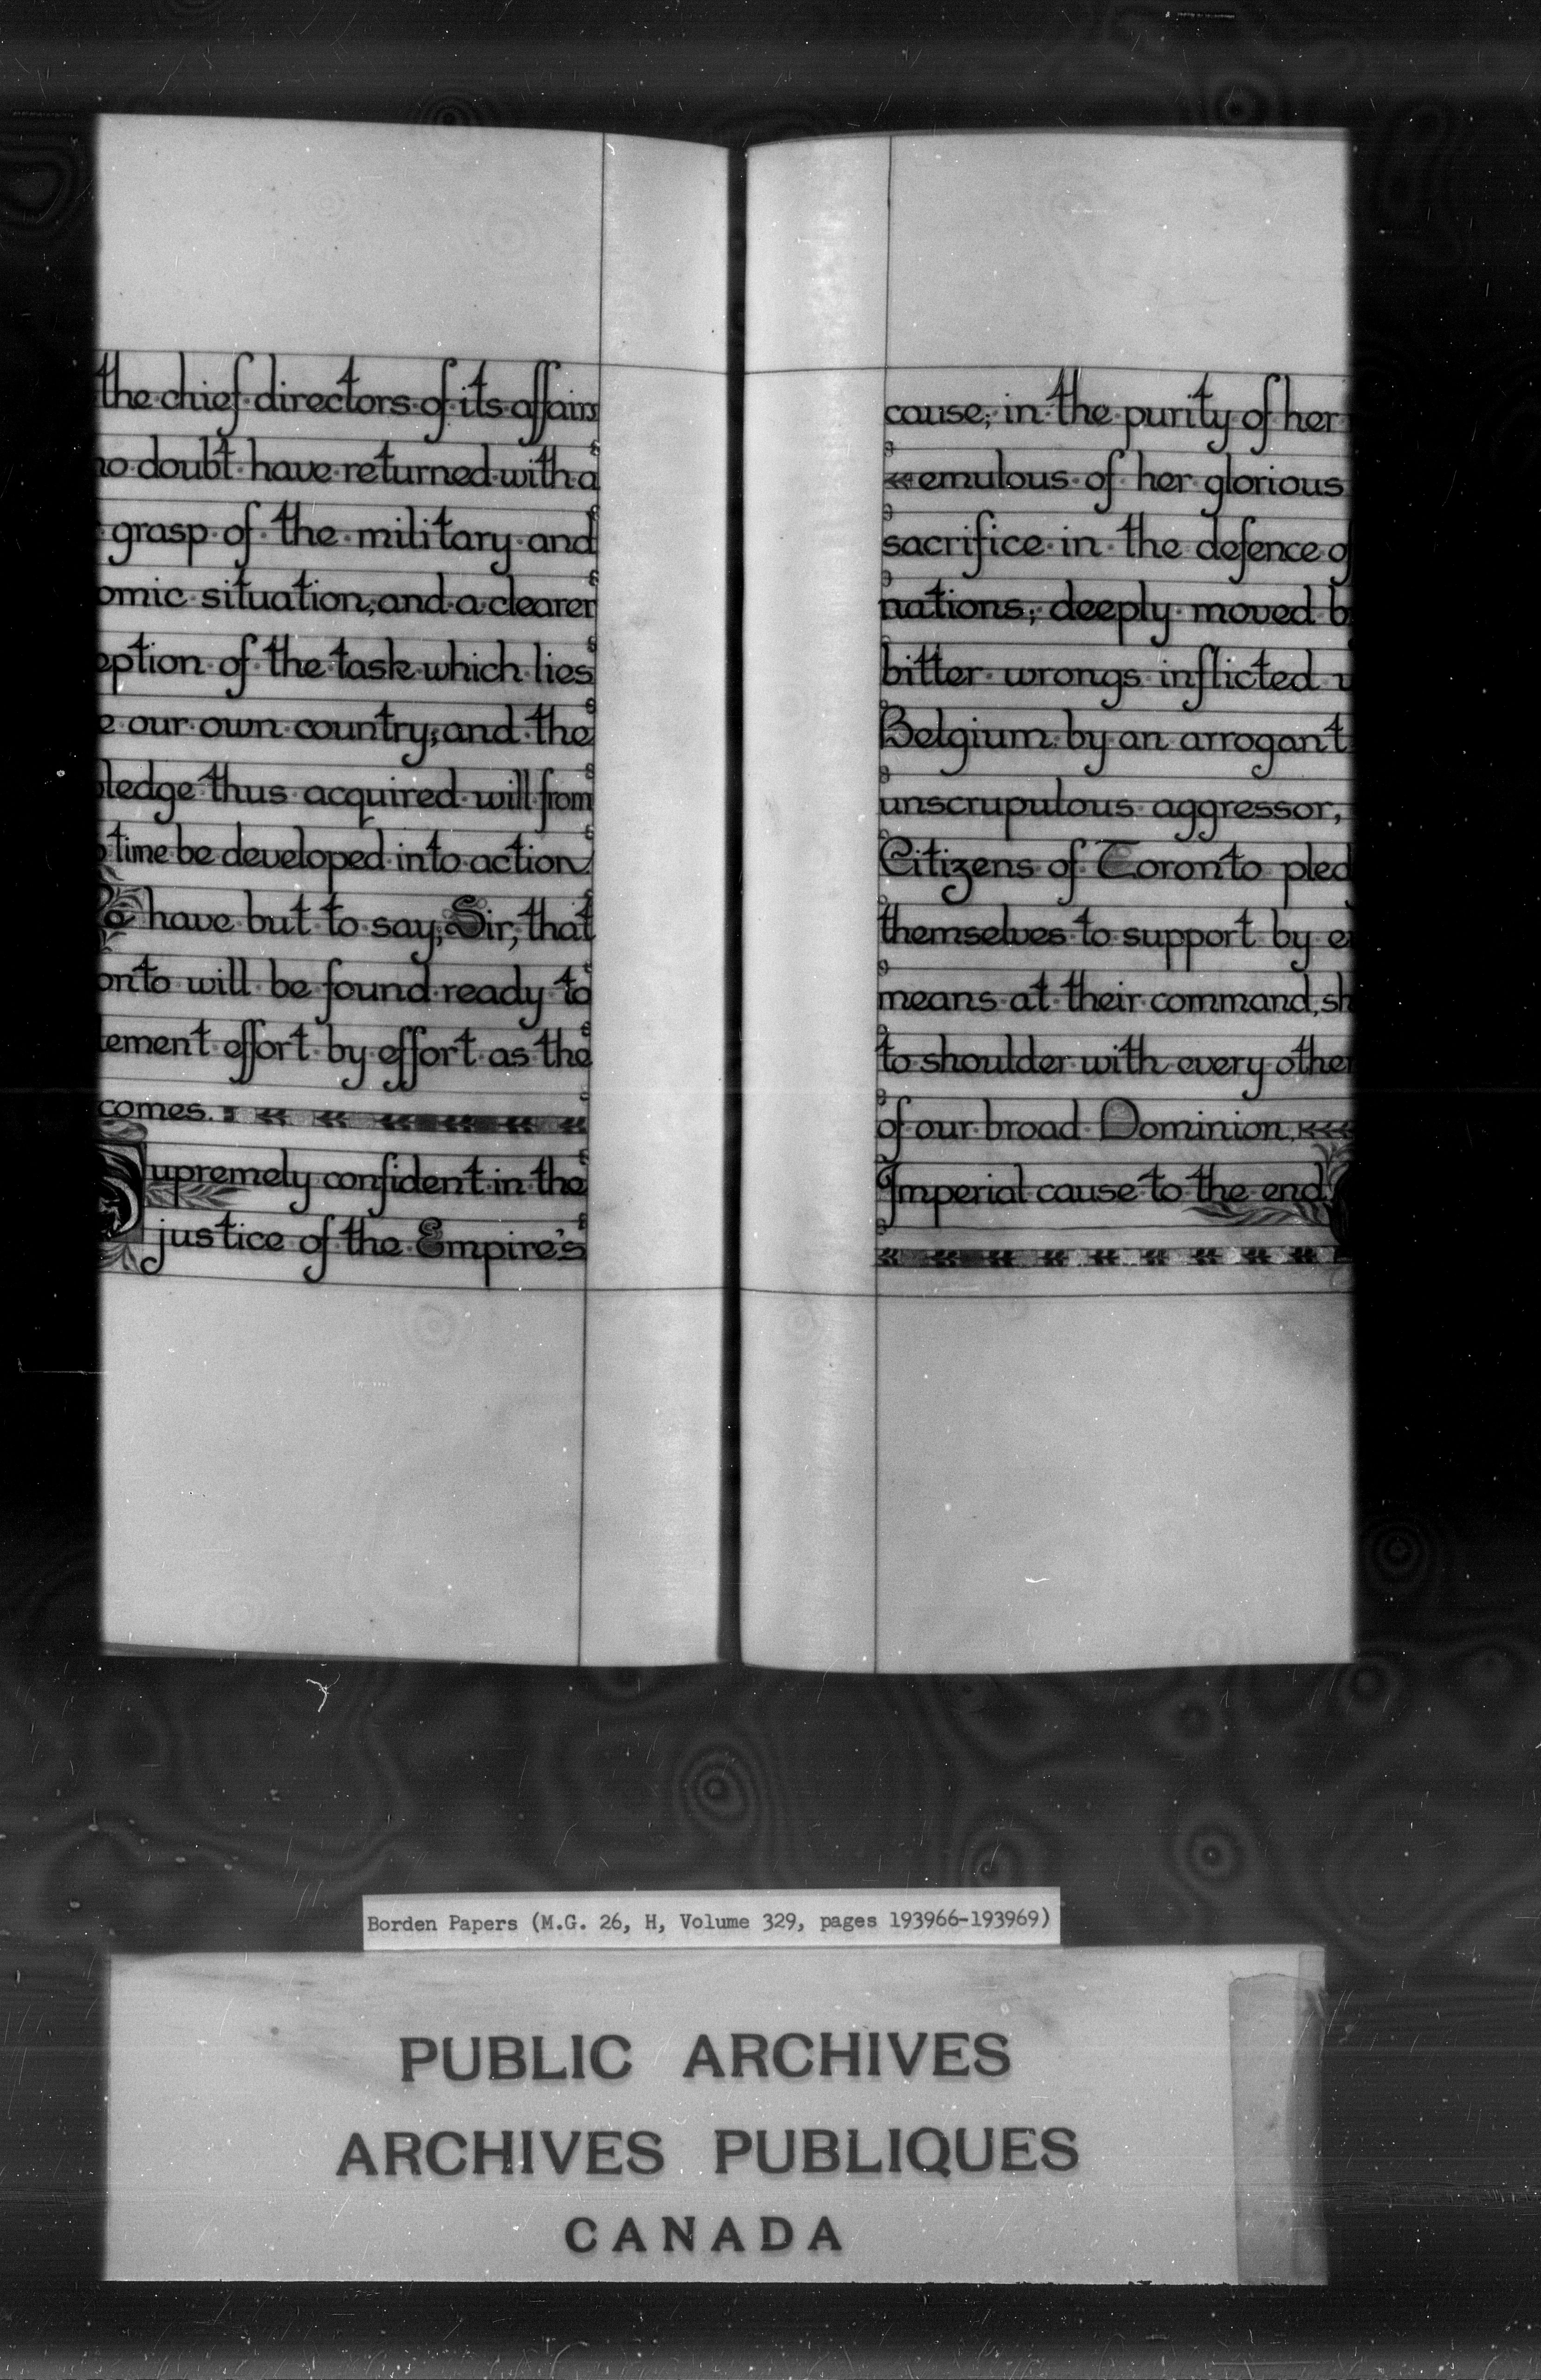 the chief directors of its affairs
no doubt have returned with a
grasp of the military and
omic situation, and a clearer
eption of the task which lies
e our own country; and the
ledge thus acquired will from
time be developed into action
have but to say, Sir, that
onto will be found ready to
lement effort by effort as the
comes.
Supremely confident in the
justice of the Empire's
cause; in the purity of her
emulous of her glorious
sacrifice in the defence o
nations; deeply moved b
bitter wrongs inflicted u
Belgium by an arrogant
unscrupulous aggressor,
Citizens of Toronto pled
themselves to support by e
means at their command, sh
to shoulder with every other
of our broad Dominion,
Imperial cause to the end.
Borden Papers (M.G. 26, H, Volume 329, pages 193966-193969)
PUBLIC ARCHIVES
ARCHIVES PUBLIQUES
CANADA